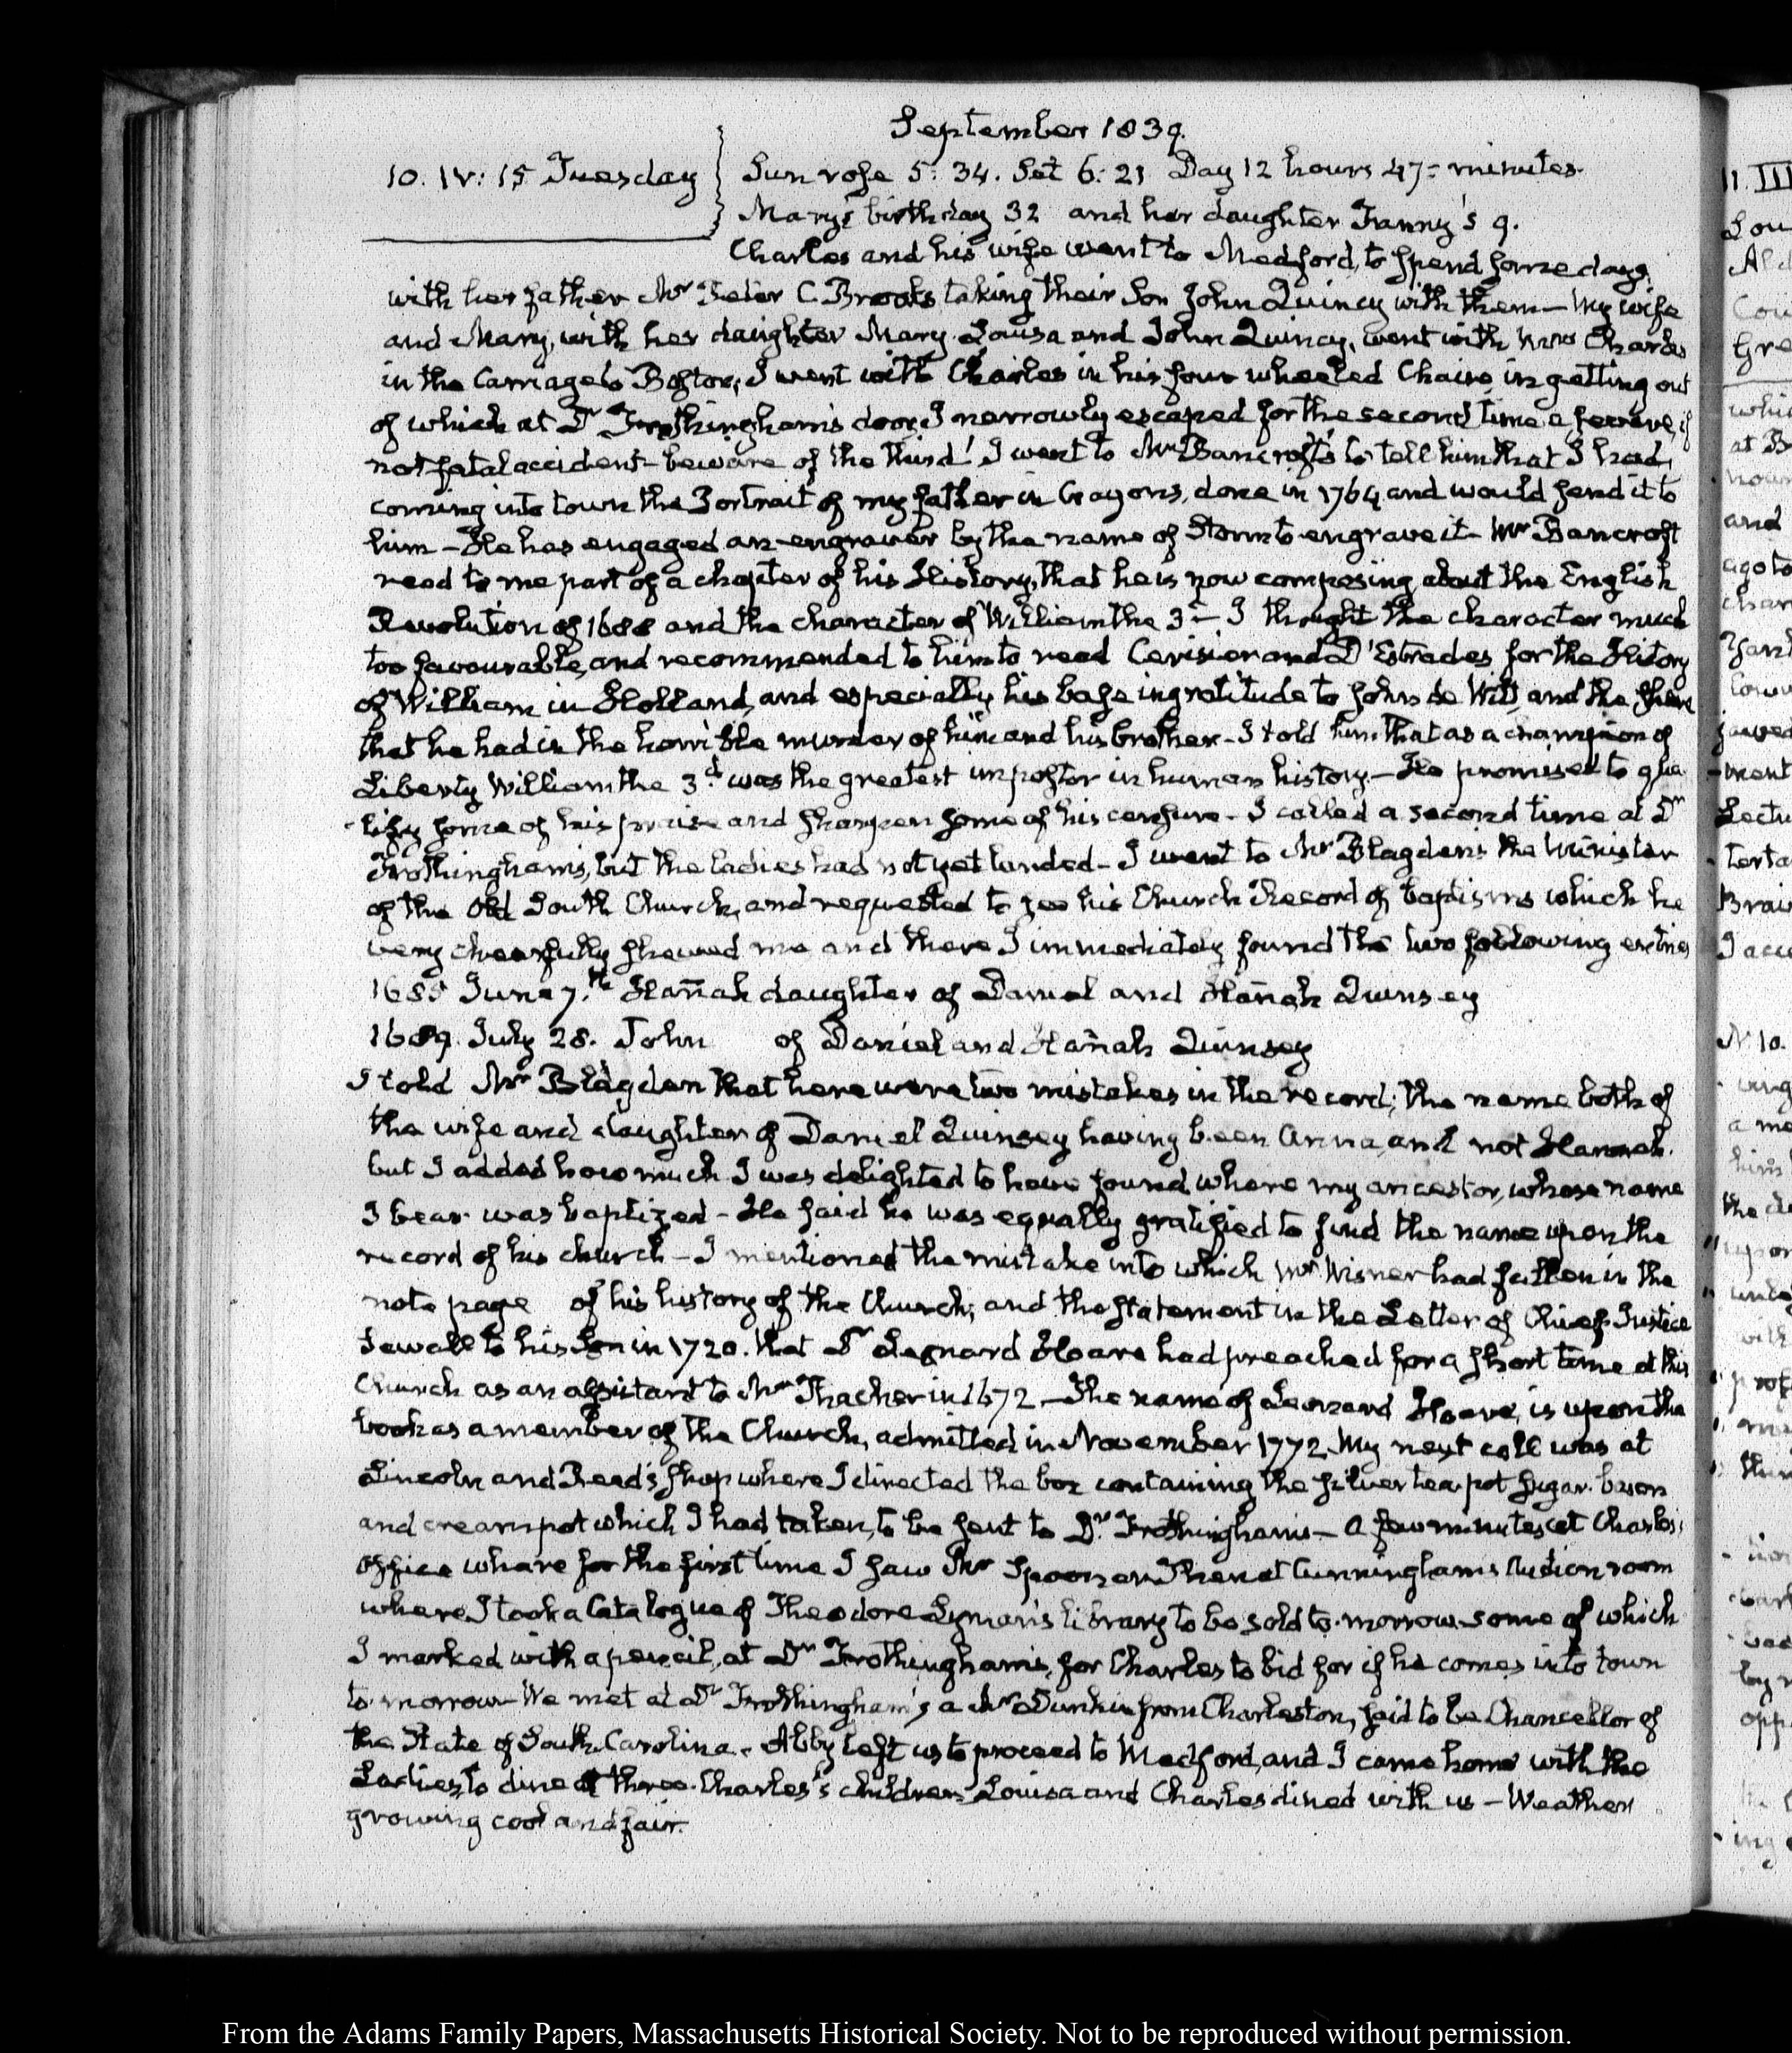 September 1839.
10. IV: 15 Tuesday
Sun rose 5: 34. Set 6: 21 Day 12 hours 47 minutes.
Mary's birthday 32 and her daughter Fanny's 9.
Charles and his wife went to Medford, to spend some days
with her father Mr Peter C. Brooks taking their Son John Quincy with them— My wife
and Mary, with her daughter Mary Louisa and John Quincy, went with Mrs Charles
in the Carriage to Boston; I went with Charles in his four wheeled Chaise, in getting out
of which at Dr Frothingham's door, I narrowly escaped for the second time a severe, if
not fatal accident— beware of the third! I went to Mr Bancroft's to tell him that I had,
coming into town the Portrait of my father in Crayons, done in 1764 and would send it to
him— He has engaged an engraver by the name of to engrave it— Mr Bancroft
read to me part of a chapter of his History, that he is now composing about the English
Revolution of 1688 and the character of William the 3d— I thought the character much
too favourable, and recommended to him to read Cerisier and D'Estrades for the History
of William in Holland, and especially his base ingratitude to John de Witt, and the share
that he had in the horrible murder of him and his brother— I told him that as a champion of
Liberty William the 3d was the greatest impostor in human history.— He promised to qua
-lify some of his praise and sharpen some of his censure— I called a second time at Dr
Frothingham's, but the ladies had not yet landed— I went to Mr Blagden's the Minister
of the Old South Church, and requested to see his Church Record of baptisms which he
very chearfully shewed me and there I immediately found the two following entries
1685 June 7.th Hañah daughter of Daniel and Hañah Quinsey
1689. July 28. John of Daniel and Hañah Quinsey
I told Mr Blagden that here were two mistakes in the record; the name both of
the wife and daughter of Daniel Quinsey having been Anna, and not Hannah.
but I added how much I was delighted to have found where my ancestor, whose name
I bear was baptized— He said he was equally gratified to find the name upon the
record of his church— I mentioned the mistake into which Mr Wisner had fallen in the
note page of his history of the Church; and the statement in the Letter of Chief Justice
Sewall to his Son in 1720. that Dr Leonard Hoare had preached for a short time at this
Church as an assistant to Mr Thacher in 1672— The name of Leonard Hoare, is upon the
book as a member of the Church, admitted in November 1772. My next call was at
Lincoln and Reed's shop where I directed the box containing the silver tea pot sugar bason
and cream pot which I had taken, to be sent to Dr. Frothingham's— A few minutes at Charles's
Office where for the first time I saw Mr Spooner Then at Cunningham's Auction room
where I took a Catalogue of Theodore Lyman's library to be sold to-morrow some of which
I marked with a pencil, at Dr Frothingham's, for Charles to bid for if he comes into town
to-morrow— We met at Dr Frothingham's a Mr Dunkin from Charleston, said to be Chancellor of
the State of South Carolina. Abby left us to proceed to Medford, and I came home with the
Ladies, to dine at three. Charles's children Louisa and Charles dined with us— Weather
growing cool and fair.
From the Adams Family Papers, Massachusetts Historical Society. Not to be reproduced without permission.